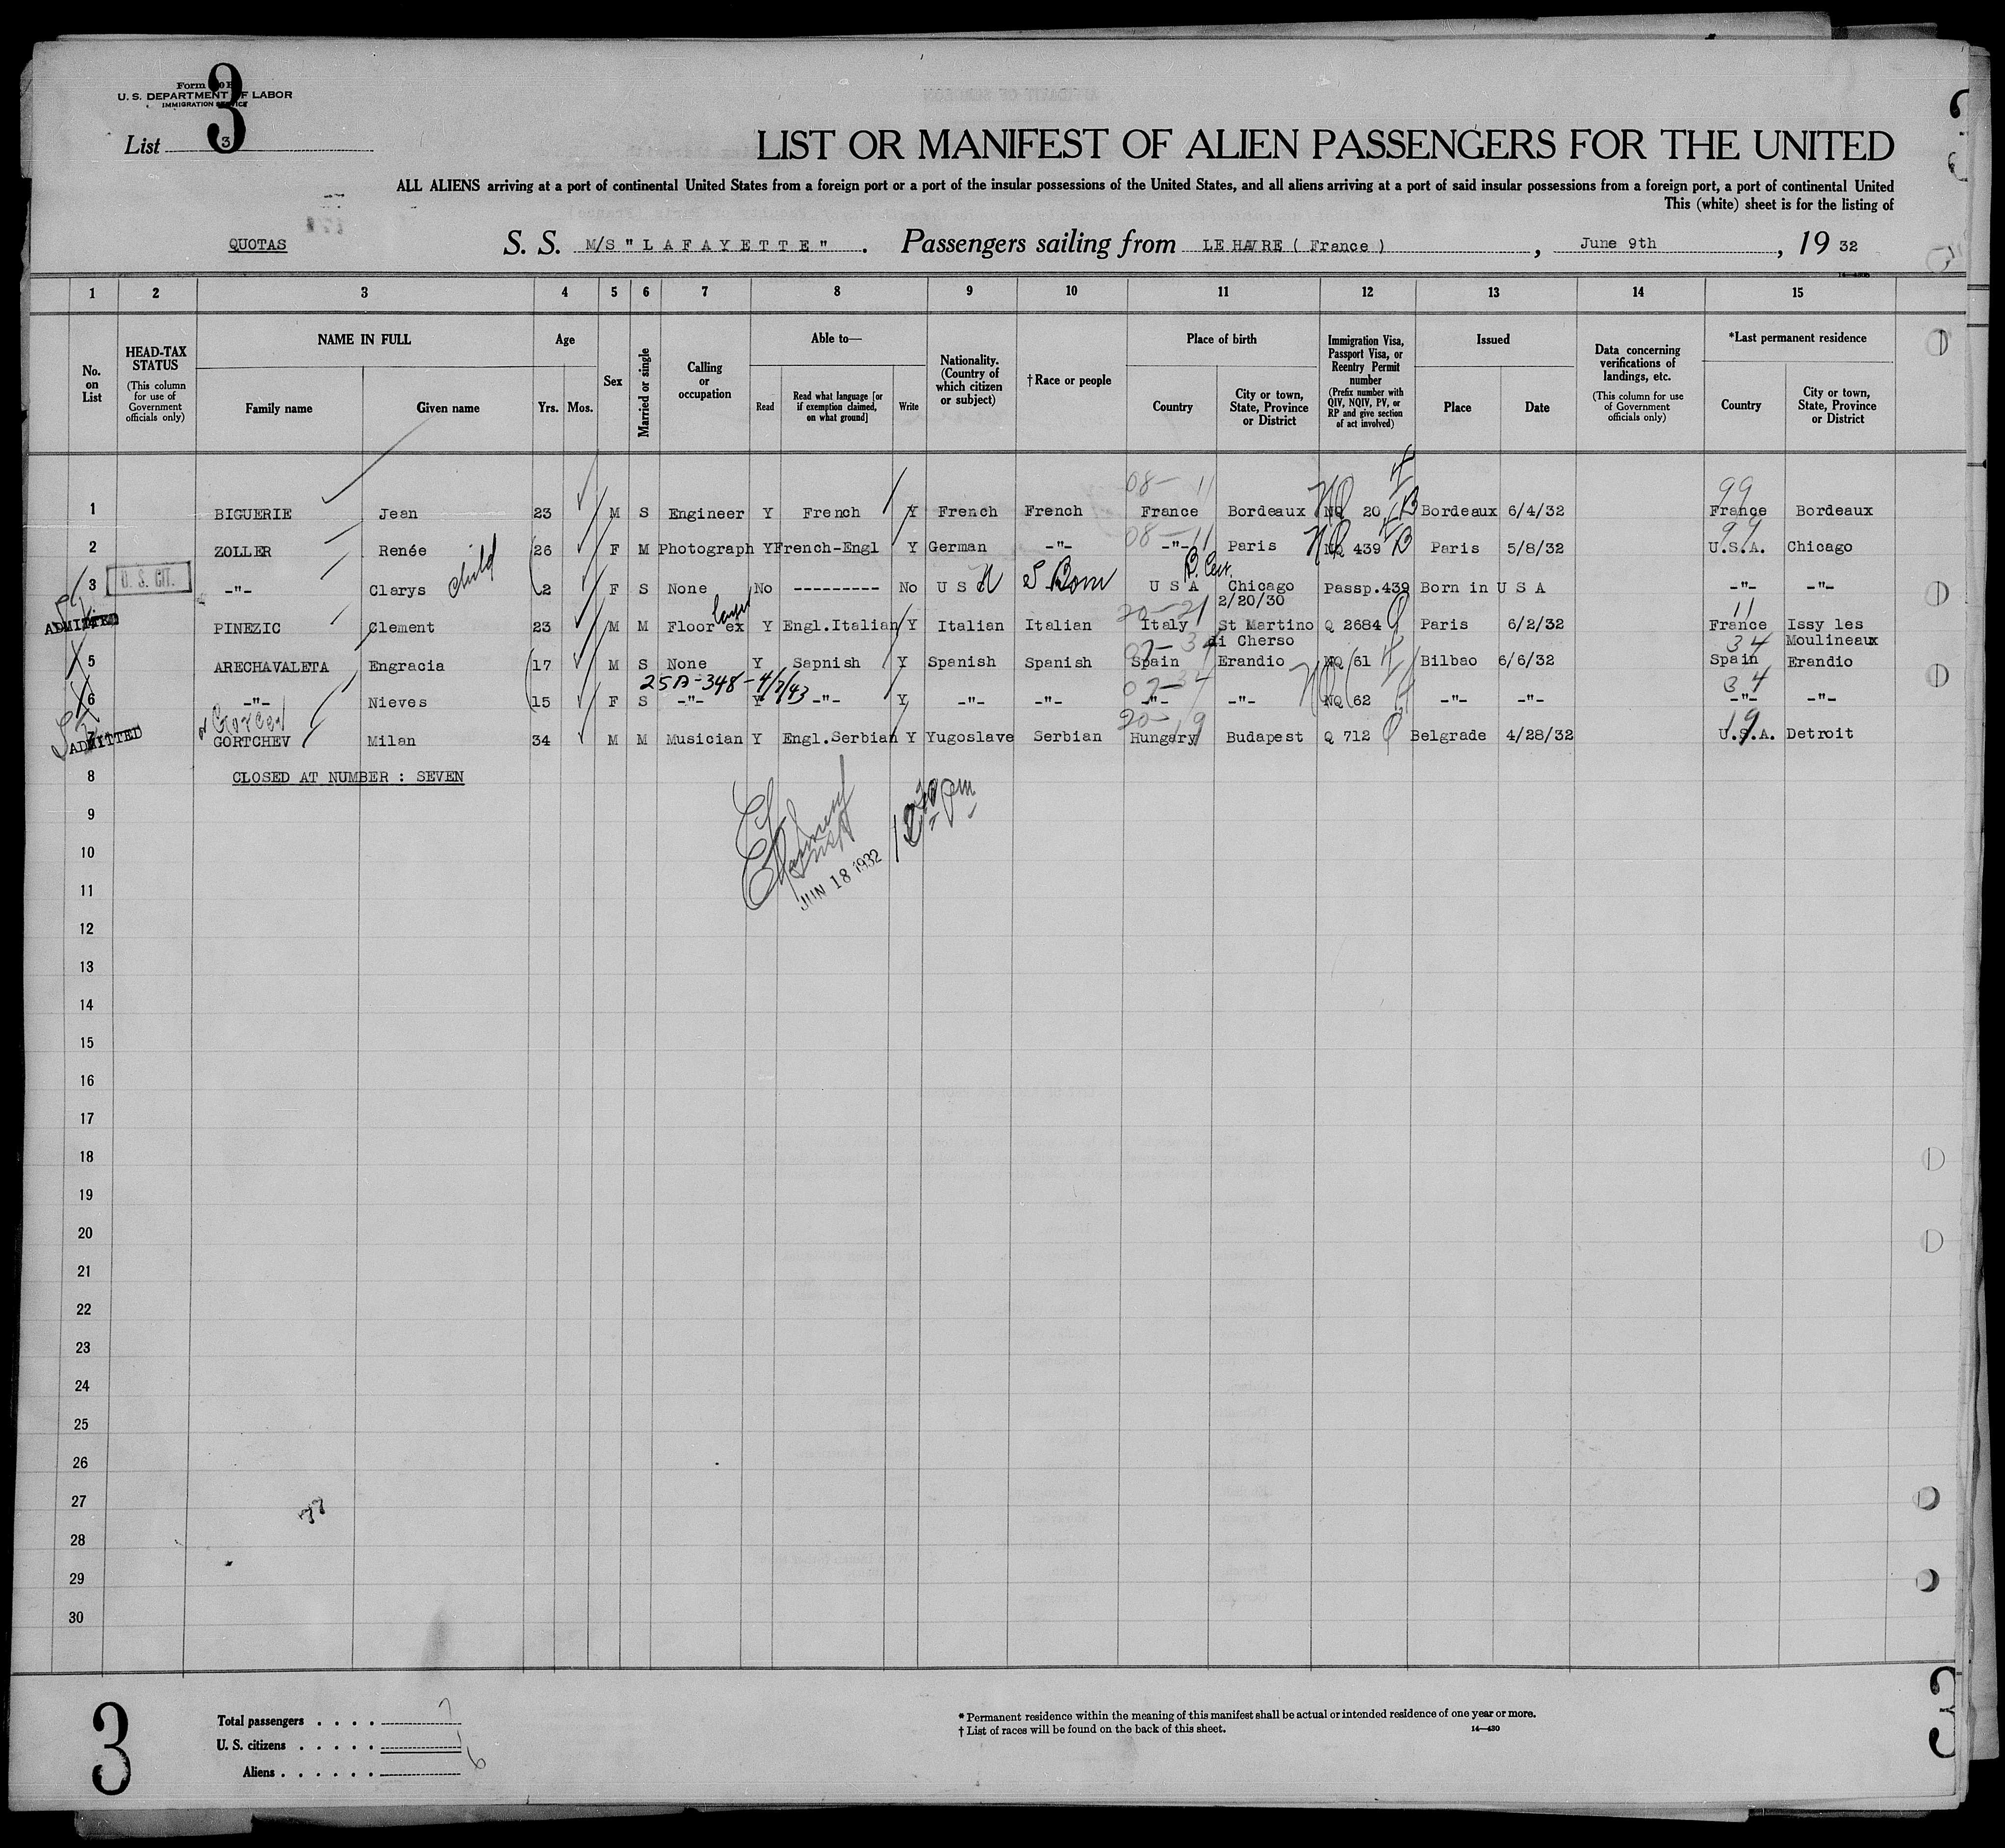 Form
U. S. DEPARTMENT OF LABOR
IMMIGRATION SERVICE
3
List 3
LIST OR MANIFEST OF ALIEN PASSENGERS FOR THE UNITED
ALL ALIENS arriving at a port of continental United States from a foreign port or a port of the insular possessions of the United States, and all aliens arriving at a port of said insular possessions from a foreign port, a port of continental United
This (white) sheet is for the listing of
QUOTAS S. S. M/S "LAFAYETTE". Passengers sailing from LE HAVRE ( France ), June 9th, 19 32
1 2 3 4 5 6 7 8 9 10 11 12 13 14 15
No. on List
HEAD-TAX STATUS (This column for use of Government officials only)
NAME IN FULL
Family name Given name
Age
Yrs. Mos.
Sex
Married or single
Calling or occupation
Able to—
Read Read what language [or if exemption claimed, on what ground] Write
Nationality. (Country of which citizen or subject)
†Race or people
Place of birth
Country City or town, State, Province or District
Immigration Visa, Passport Visa, or Reentry Permit number (Prefix number with QIV, NQIV, PV, or RP and give section of act involved)
Issued
Place Date
Data concerning verifications of landings, etc. (This column for use of Government officials only)
*Last permanent residence
Country City or town, State, Province or District
08- 11 99
1 BIGUERIE Jean 23 M S Engineer Y French Y French French France Bordeaux NQ 20 Bordeaux 6/4/32 France Bordeaux
08-11 99
2 ZOLLER Renée 26 F M Photograph Y French-Engl Y German -"- -"- Paris NQ 439 Paris 5/8/32 U.S.A. Chicago
3 U. S. CIT. -"- Clarys child 2 F S None No --------- No U S A S Born U S A B. Cer. Chicago 2/20/30 Passp.439 Born in U S A -"- -"-
20-21 11
ADMITTED PINEZIC Clement 23 M M Floor layer ex Y Engl.Italian Y Italian Italian Italy St Martino di Cherso Q 2684 Paris 6/2/32 France Issy les Moulineaux
07-34 34
5 ARECHAVALETA Engracia 17 M S None Y Sapnish Y Spanish Spanish Spain Erandio NQ 61 Bilbao 6/6/32 Spain Erandio
25A-348-4/7/43 07-34 34
6 -"- Nieves 15 F S -"- Y -"- Y -"- -"- -"- -"- NQ 62 -"- -"- -"- -"-
20-19 19
7 ADMITTED GORTCHEV Milan 34 M M Musician Y Engl.Serbian Y Yugoslave Serbian Hungary Budapest Q 712 Belgrade 4/28/32 U.S.A. Detroit
8 CLOSED AT NUMBER : SEVEN
9
10
11
JUN 18 1932
12
13
14
15
16
17
18
19
20
21
22
23
24
25
26
27
28
29
30
3
Total passengers . . . . 7
U. S. citizens . . . . . 1
Aliens . . . . . . 6
* Permanent residence within the meaning of this manifest shall be actual or intended residence of one year or more.
† List of races will be found on the back of this sheet. 14—430
3